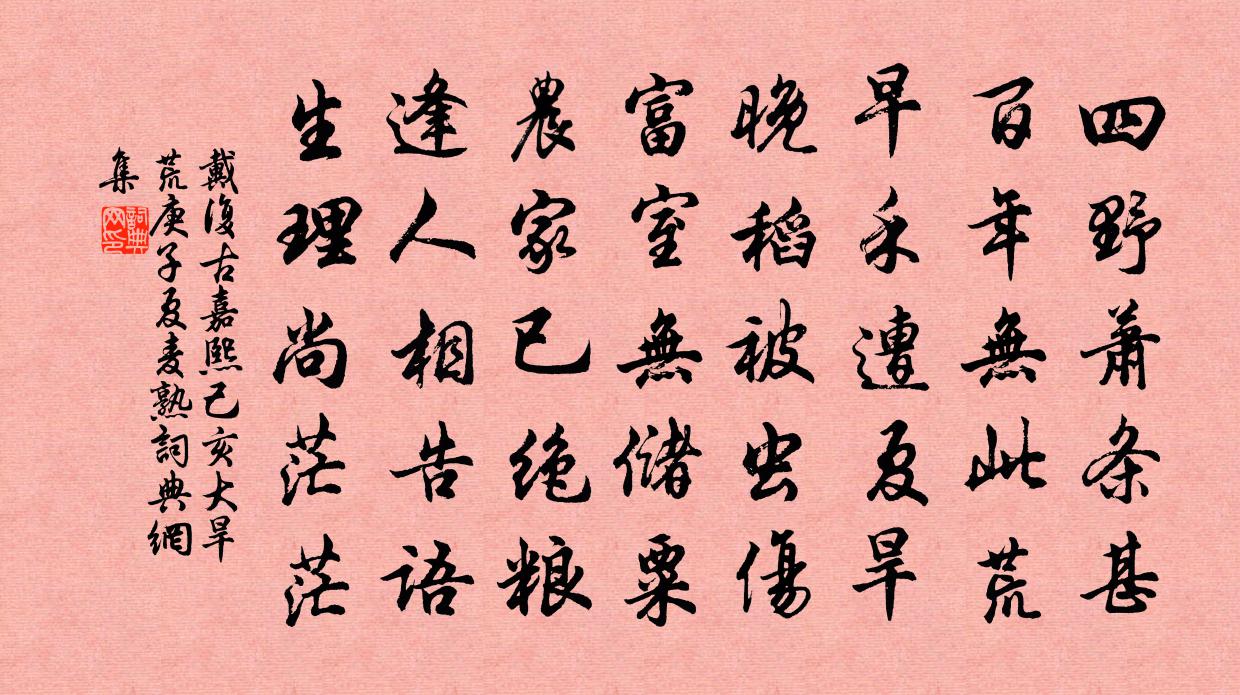 四野蕭条甚
百年無此荒
早禾遭夏旱
晚稻被虫傷
富室無儲粟
農家已绝粮
逢人相告語
生理尚茫茫
戴復古嘉熙己亥大旱
荒庚子夏麦熟詞典網
集
詞典
网印